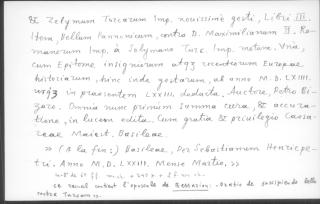 & Zelymum Turcarum Imp. nouissimè gesti, Libri III.
Item, Bellum Pannonicum, contra D. Maximilianum II. Ro-
manorum Imp. à Solymano Turc. Imp. motum. Vnà,
cum Epitome insigniorum atqz recentiorum Europae
historiarum, hinc inde gestarum, ab anno M.D. LXIIII.
usqz in praesentem LXXIII, deducta. Auctore, Petro Bi-
zaro. Omnia nunc primùm summa cura, & accura-
tione, in lucem edita. Cum gratia & priuilegio Caesa-
reae Maiest. Basileae
» (A la fin:) Basileae, Per Sebastianum Henricpe-
tri. Anno M.D. LXXIII. Mense Martio. »
ce recueil contient l'opuscule de Bessarion: Oratio de suscipiendo bello
contra Turcam